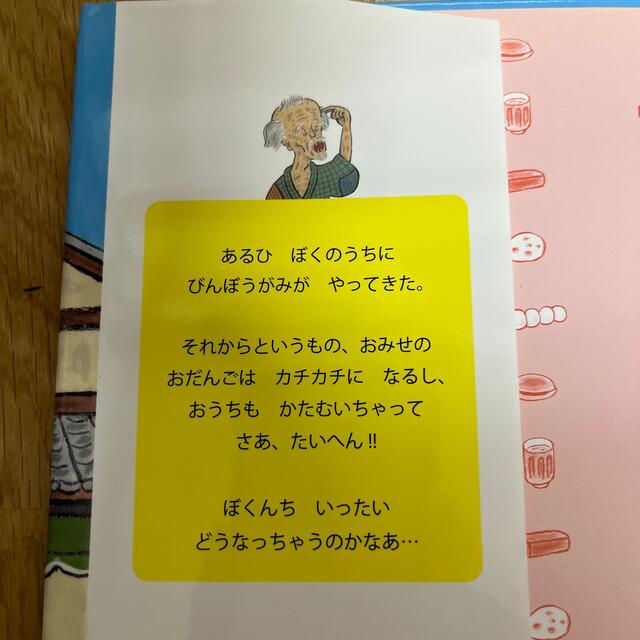 あるひ　ぼくのうちに
びんぼうがみが　やってきた。
それからというもの、おみせの
おだんごは　カチカチに　なるし、
おうちも　かたむいちゃって
さあ、たいへん!!
ぼくんち　いったい
どうなっちゃうのかなあ…